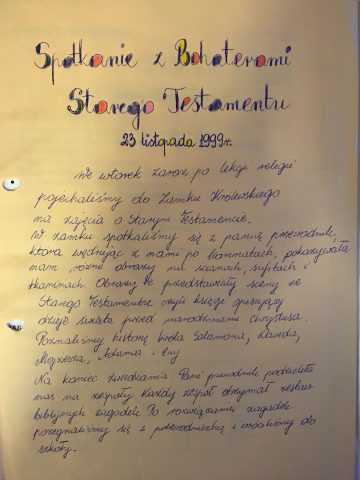 Spotkanie z Bohaterami
Starego Testamentu
23 listopada 1999r.
We wtorek zaraz po lekcji religii
pojechaliśmy do Zamku Królewskiego
na zajęcia o Starym Testamencie.
W zamku spotkaliśmy się z panią przewodnik,
która wędrując z nami po komnatach, pokazywała
nam różne obrazy na ścianach, sufitach i
tkaninach. Obrazy te przedstawiały sceny ze
Starego Testamentu czyli księgi opisującej
dzieje świata przed narodzinami Chrystusa.
Poznaliśmy historię króla Salomona, Dawida,
Mojżesza, Adama i Ewy
Na koniec zwiedzania Pani przewodnik podzieliła
nas na zespoły. Każdy zespół otrzymał zestaw
biblijnych zagadek. Po rozwiązaniu zagadek
pożegnaliśmy się z przewodniczką i wróciliśmy do
szkoły.